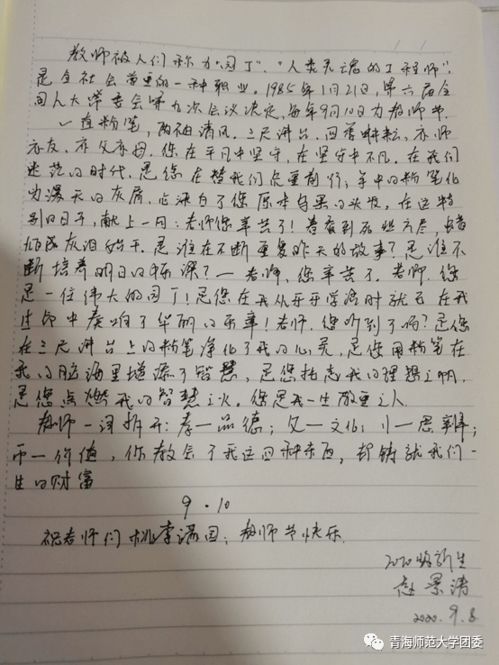 教师被人们称为"园丁"、"人类灵魂的工程师",
是全社会尊重的一种职业。1985年1月21日,第六届全
国人大常委会第九次会议决定,每年9月10日为教师节。
一支粉笔,两袖清风,三尺讲台,四季耕耘,亦师
亦友,亦父亦母,您在平凡中坚守,在坚守中不凡。在我们
迷茫的时代,是您在替我们负重前行;手中的粉笔化
为漫天的灰屑,也染白了您原本乌黑的头发,在这特
别的日子,献上一句:老师您辛苦了!春蚕到死丝方尽,蜡炬
成灰泪始干。是谁在不断重复昨天的故事?是谁不
断培养明日的栋梁?一老师,您辛苦了。老师,您
是一位伟大的园丁!是您在我从开学时就已在我
生命中奏响了华丽的乐章!老师,您听到了吗?是您
在三尺讲台上的粉笔净化了我的心灵,是您用粉笔在
我的脑海里增添了智慧,是您扬起我的理想之帆,
是您点燃我的智慧之火。您是我一生敬重之人
教师一词拆开:孝一品德;攵一文化;丨一思辨;
币一价值,你教会了我这四种东西,却铸就我们一
生的财富
9·10
祝老师们桃李满园;教师节快乐
2020级新生
赵景涛
2020.9.8
青海师范大学团委